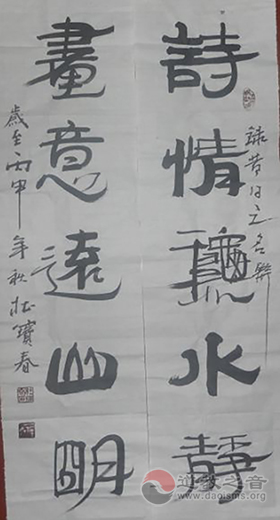 詩情龝水靜
録昔日之名聯
畫意遠山明
歲至丙申年秋杜寶春
道教之音
www.daoisms.org